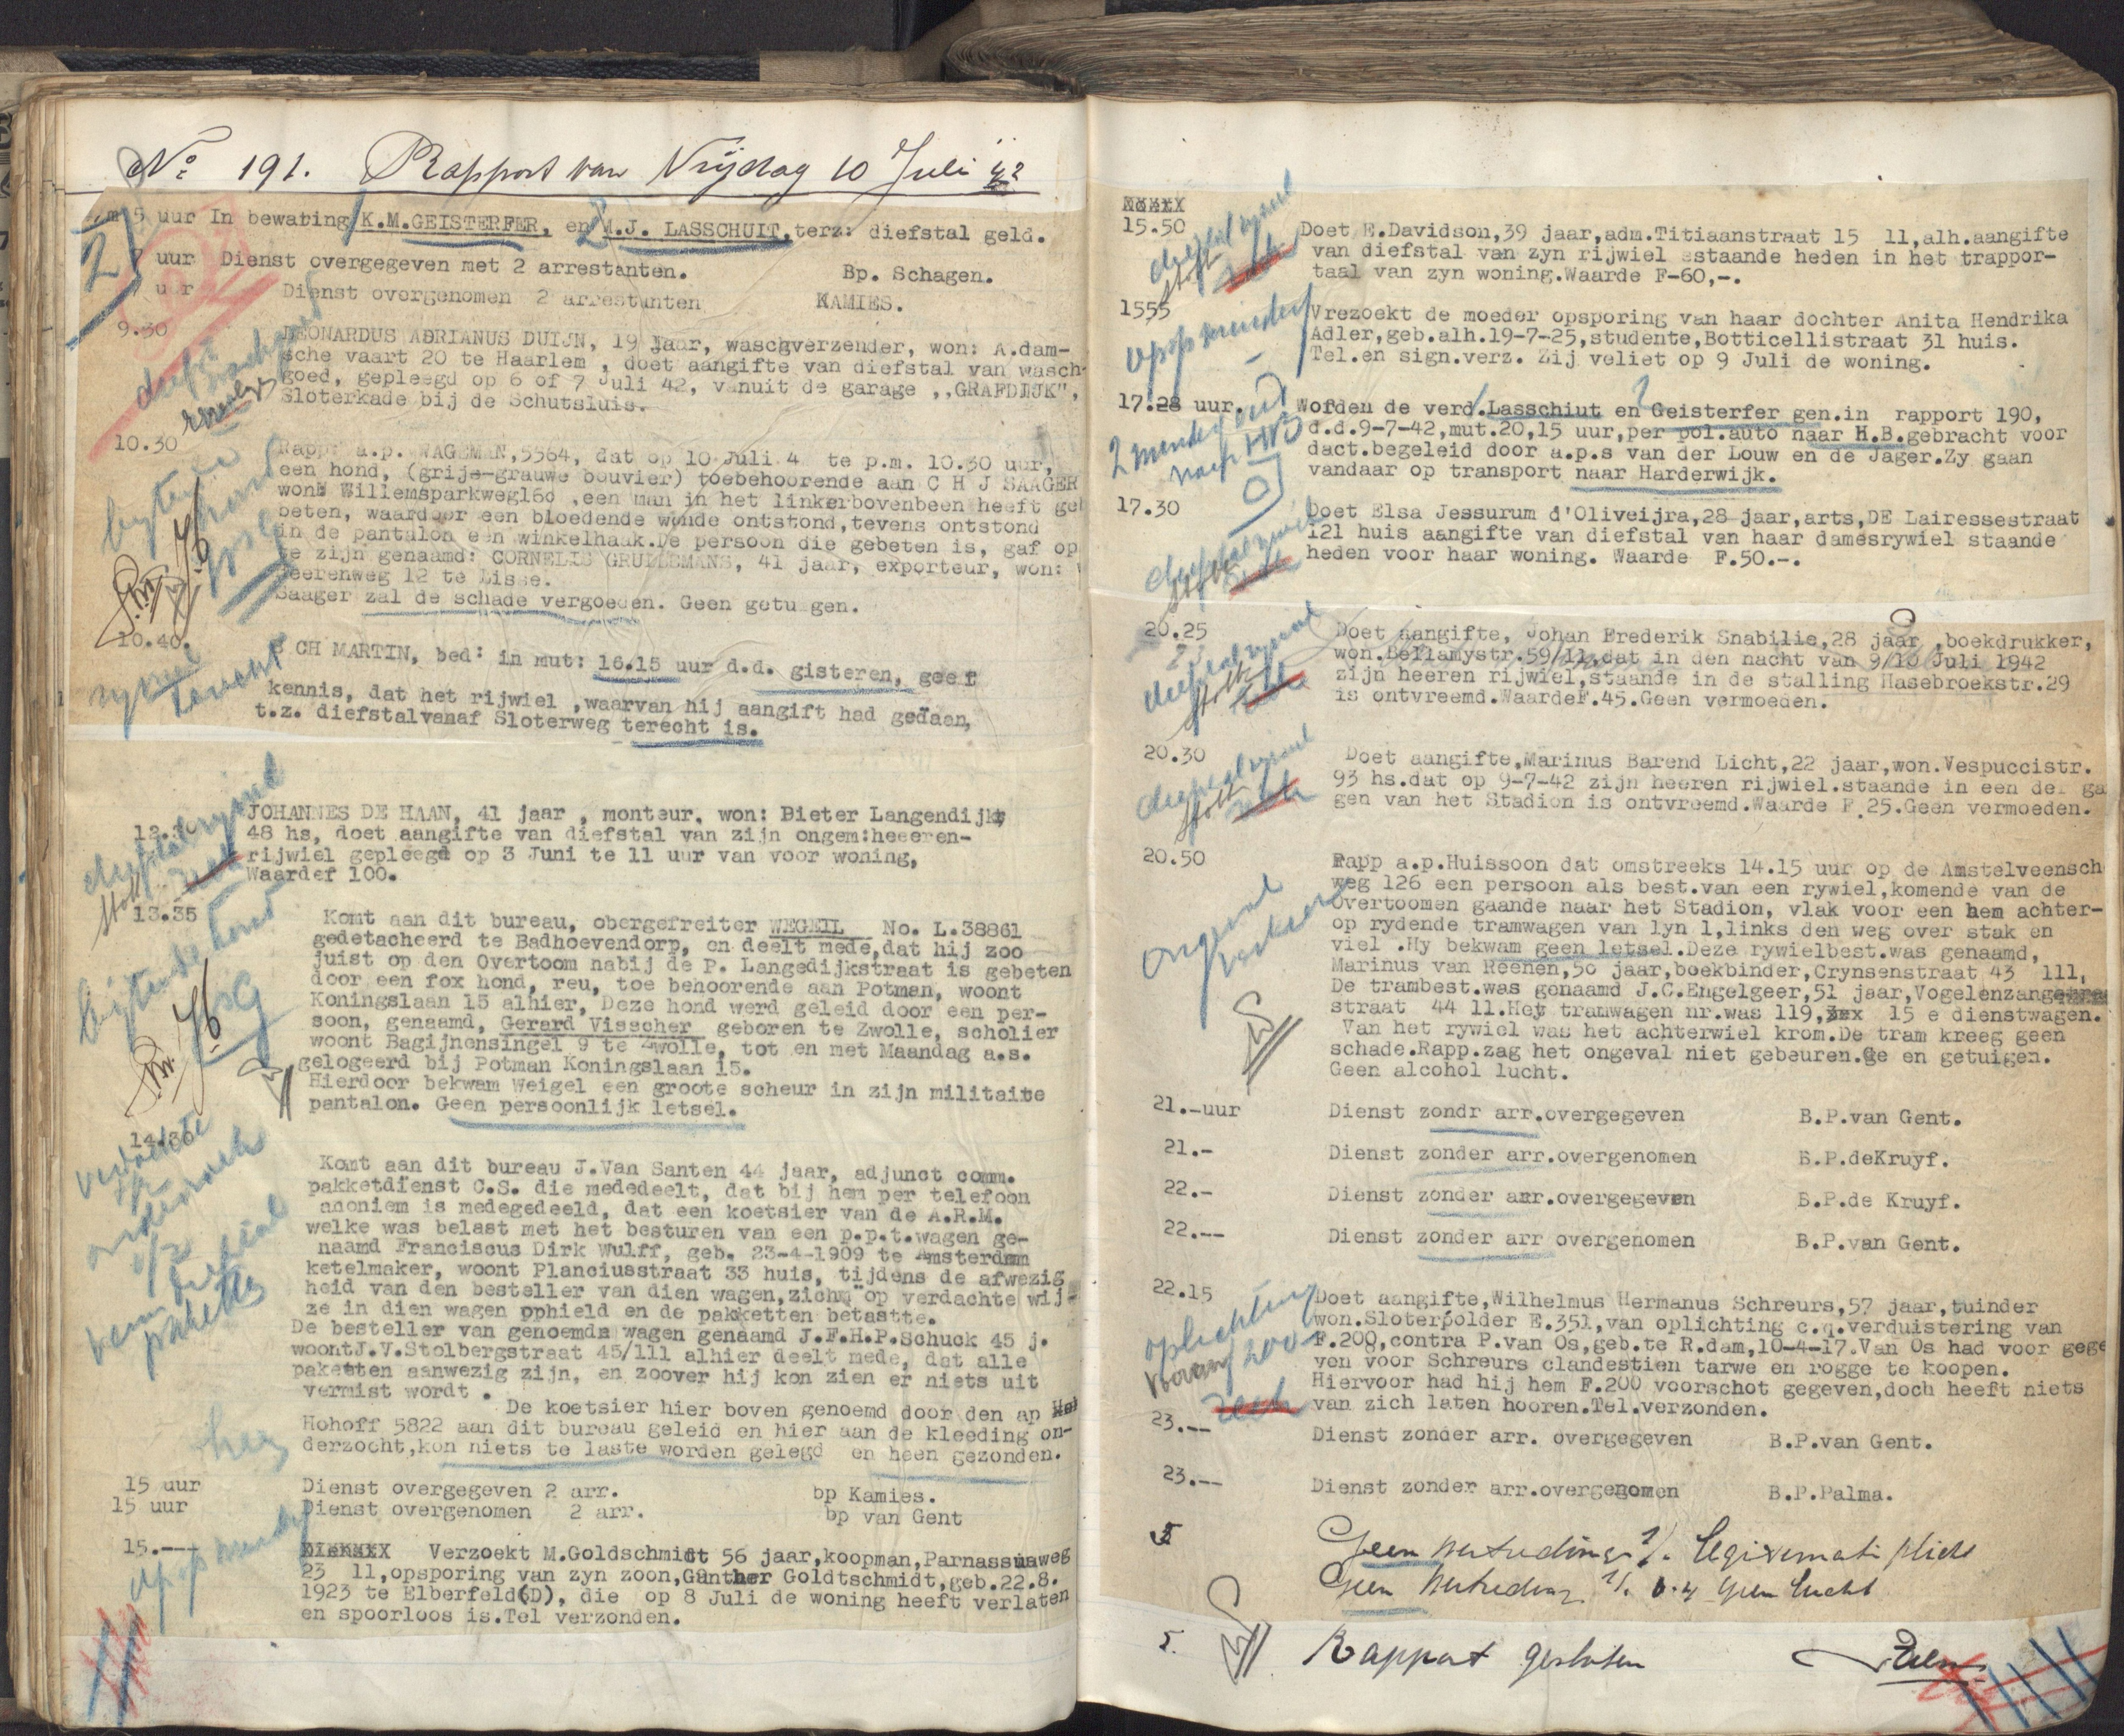 No 191. Rapport van Vrijdag 10 Juli '42
vm 5 uur In bewating K.M.GEISTERFER, en M.J. LASSCHUIT, terz: diefstal geld.
7 uur Dienst overgegeven met 2 arrestanten. Bp. Schagen.
uur Dienst overgenomen 2 arrestanten KAMIES.
9.30
LEONARDUS ADRIANUS DUIJN, 19 jaar, waschverzender, won: A.dam-
sche vaart 20 te Haarlem , doet aangifte van diefstal van wasch-
goed, gepleegd op 6 of 7 Juli 42, vanuit de garage ,,GRAFDIJK",
Sloterkade bij de Schutsluis.
10.30
Rapp: a.p. WAGEMAN,5364, dat op 10 Juli 4 te p.m. 10.30 uur,
een hond, (grijs-grauwe bouvier) toebehoorende aan C H J SAAGER
wond Willemsparkweg160 ,een man in het linkerbovenbeen heeft ge
beten, waardoor een bloedende wonde ontstond,tevens ontstond
in de pantalon een winkelhaak.De persoon die gebeten is, gaf op
te zijn genaamd: CORNELIS GRULLEMANS, 41 jaar, exporteur, won:
Heerenweg 12 te Lisse.
Saager zal de schade vergoeden. Geen getuigen.
bytende hond
10.40.
CH MARTIN, bed: in mut: 16.15 uur d.d. gisteren, geef
kennis, dat het rijwiel ,waarvan hij aangift had gedaen,
t.z. diefstalvanaf Sloterweg terecht is.
rywiel terecht
JOHANNES DE HAAN, 41 jaar , monteur, won: Pieter Langendijkt
48 hs, doet aangifte van diefstal van zijn ongem:heeeren-
rijwiel gepleegd op 3 Juni te 11 uur van voor woning,
Waardef 100.
diefstal rywiel
13.35
Komt aan dit bureau, obergefreiter WEGEIL No. L.38861
gedetacheerd te Badhoevendorp, en deelt mede,dat hij zoo
juist op den Overtoom nabij de P. Langedijkstraat is gebeten
door een fox hond, reu, toe behoorende aan Potman, woont
Koningslaan 15 alhier, Deze hond werd geleid door een per-
soon, genaamd, Gerard Visscher geboren te Zwolle, scholier
woont Bagijnensingel 9 te Zwolle, tot en met Maandag a.s.
gelogeerd bij Potman Koningslaan 15.
Hierdoor bekwam Weigel een groote scheur in zijn militaite
pantalon. Geen persoonlijk letsel.
bijtende hond
14.30
Komt aan dit bureau J.Van Santen 44 jaar, adjunct comm.
pakketdienst C.S. die mededeelt, dat bij hem per telefoon
anoniem is medegedeeld, dat een koetsier van de A.R.M.
welke was belast met het besturen van een p.p.t.wagen ge-
naamd Franciscus Dirk Wulff, geb. 23-4-1909 te Amsterdam
ketelmaker, woont Planciusstraat 33 huis, tijdens de afwezig
heid van den besteller van dien wagen,zichm op verdachte wij-
ze in dien wagen pphield en de pakketten betastte.
De besteller van genoemda wagen genaamd J.F.H.P.Schuck 45 j.
woontJ.V.Stolbergstraat 45/111 alhier deelt mede, dat alle
paketten aanwezig zijn, en zoover hij kon zien er niets uit
vermist wordt .
De koetsier hier boven genoemd door den ap
Hohoff 5822 aan dit bureau geleid en hier aan de kleeding on-
derzocht,kon niets te laste worden gelegd en heen gezonden.
heen
15 uur Dienst overgegeven 2 arr. bp Kamies.
15 uur Dienst overgenomen 2 arr. bp van Gent
15.--- Verzoekt M.Goldschmidt 56 jaar,koopman,Parnassuaweg
23 11,opsporing van zyn zoon,Gunther Goldtschmidt,geb.22.8.
1923 te Elberfeld(D), die op 8 Juli de woning heeft verlaten
en spoorloos is.Tel verzonden.
15.50
Doet E.Davidson,39 jaar,adm.Titiaanstraat 15 11,alh.aangifte
van diefstal van zyn rijwiel staande heden in het trappor-
taal van zyn woning.Waarde F-60,-.
diefstal rywiel
1555
Vrezoekt de moeder opsporing van haar dochter Anita Hendrika
Adler,geb.alh.19-7-25,studente,Botticellistraat 31 huis.
Tel.en sign.verz. Zij veliet op 9 Juli de woning.
17.28 uur. Wofden de verd.Lasschiut en Geisterfer gen.in rapport 190,
d.d.9-7-42,mut.20,15 uur,per pol.auto naar H.B.gebracht voor
dact.begeleid door a.p.s van der Louw en de Jager.Zy gaan
vandaar op transport naar Harderwijk.
17.30
Doet Elsa Jessurum d'Oliveijra,28 jaar,arts,DE Lairessestraat
121 huis aangifte van diefstal van haar damesrywiel staande
heden voor haar woning. Waarde F.50.-.
diefstal rywiel
20.25
Doet aangifte, Johan Frederik Snabilie,28 jaar ,boekdrukker,
won.Bellamystr.59/11,dat in den nacht van 9/10 Juli 1942
zijn heeren rijwiel,staande in de stalling Hasebroekstr.29
is ontvreemd.WaardeF.45.Geen vermoeden.
diefstal rywiel
20.30
Doet aangifte,Marinus Barend Licht,22 jaar,won.Vespuccistr.
93 hs.dat op 9-7-42 zijn heeren rijwiel.staande in een der ga
gen van het Stadion is ontvreemd.Waarde F.25.Geen vermoeden.
diefstal rywiel
20.50
Rapp a.p.Huissoon dat omstreeks 14.15 uur op de Amstelveensch
weg 126 een persoon als best.van een rywiel,komende van de
Overtoomen gaande naar het Stadion, vlak voor een hem achter-
op rydende tramwagen van lyn 1,links den weg over stak en
viel .Hy bekwam geen letsel.Deze rywielbest.was genaamd,
Marinus van Reenen,50 jaar,boekbinder,Crynsenstraat 43 111,
De trambest.was genaamd J.C.Engelgeer,51 jaar,Vogelenzang
straat 44 11.Hey tramwagen nr.was 119, 15 e dienstwagen.
Van het rywiel was het achterwiel krom.De tram kreeg geen
schade.Rapp.zag het ongeval niet gebeuren.Ge en getuigen.
Geen alcohol lucht.
ongeval
21.-uur Dienst zondr arr.overgegeven B.P.van Gent.
21.- Dienst zonder arr.overgenomen B.P.deKruyf.
22.- Dienst zonder arr.overgegeven B.P.de Kruyf.
22.-- Dienst zonder arr overgenomen B.P.van Gent.
22.15
Doet aangifte,Wilhelmus Hermanus Schreurs,57 jaar,tuinder
won.Sloterpolder E.351,van oplichting c.q.verduistering van
F.200,contra P.van Os,geb.te R.dam,10-4-17.Van Os had voor gege
ven voor Schreurs clandestien tarwe en rogge te koopen.
Hiervoor had hij hem F.200 voorschot gegeven,doch heeft niets
van zich laten hooren.Tel.verzonden.
oplichting
23.-- Dienst zonder arr. overgegeven B.P.van Gent.
23.-- Dienst zonder arr.overgenomen B.P.Palma.
5 Geen
Geen
5. Rapport gesloten